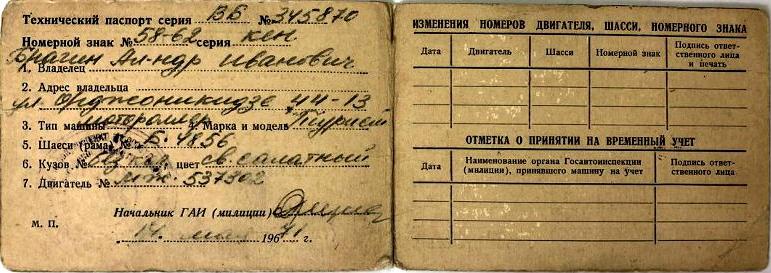 Технический паспорт серия ВБ № 345870
Номерной знак № 58-62 серия кен
Брагин Ал-ндр Иванович
1. Владелец
2. Адрес владельца
ул. Орджоникидзе 44-13
3. Тип машины мотороллер 4. Марка и модель Турист
5. Шасси (рама) № Б-4856
6. Кузов № цвет св. салатный
7. Двигатель № 537902
Начальник ГАИ (милиции)
М. П. 14 1971 г.
ИЗМЕНЕНИЯ НОМЕРОВ ДВИГАТЕЛЯ, ШАССИ, НОМЕРНОГО ЗНАКА
Дата Двигатель Шасси Номерной знак Подпись ответ-
ственного лица
и печать
ОТМЕТКА О ПРИНЯТИИ НА ВРЕМЕННЫЙ УЧЕТ
Дата Наименование органа Госавтоинспекции
(милиции), принявшего машину на учет
Подпись ответ-
ственного лица